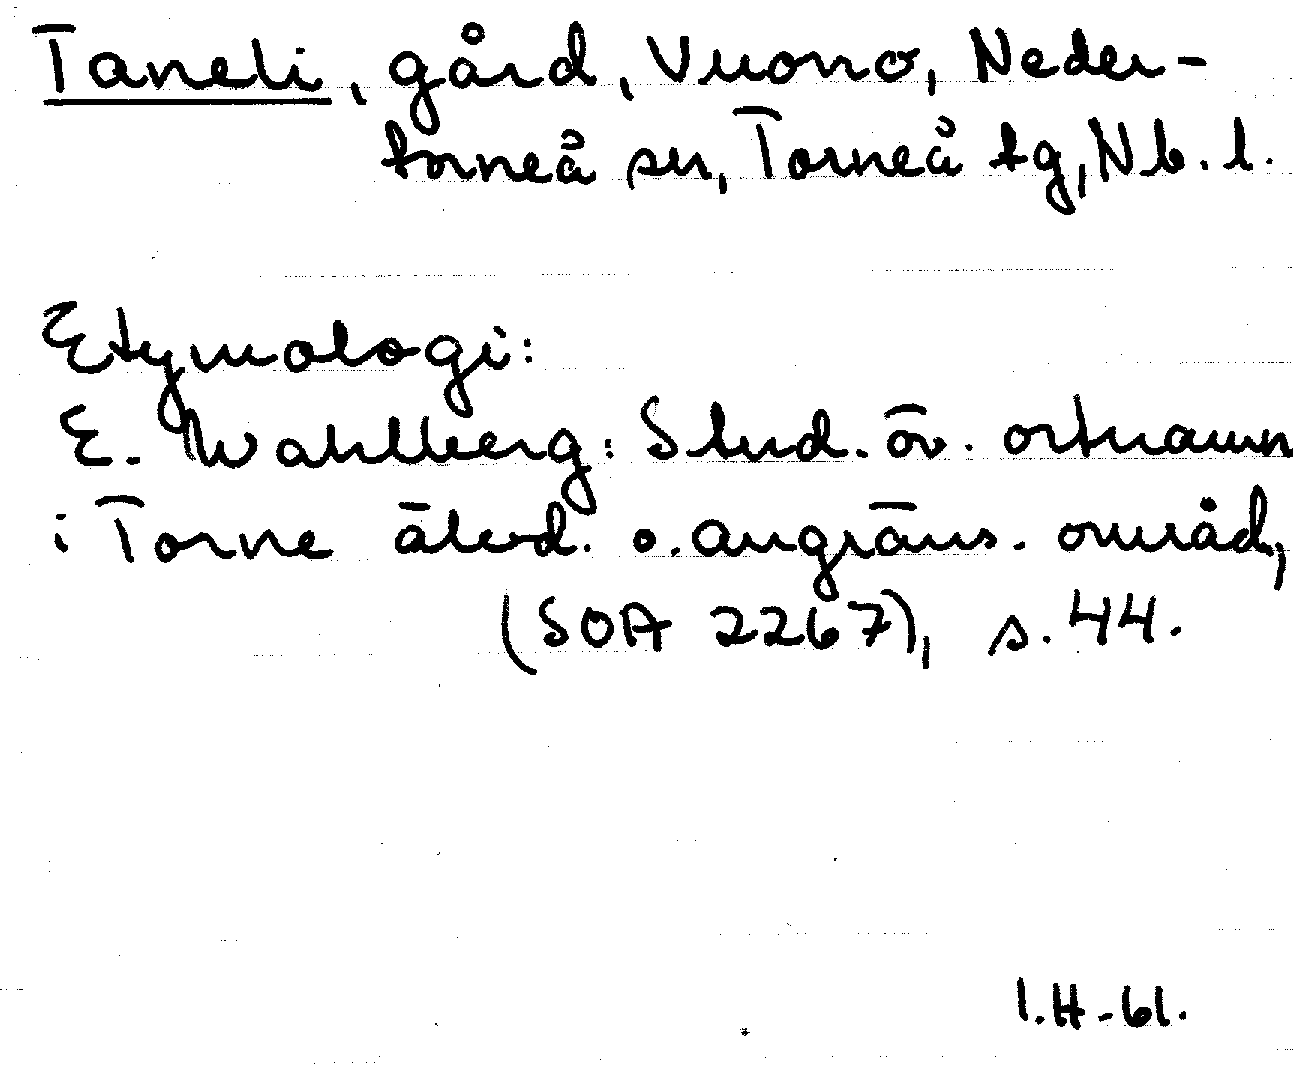 Taneli, gård, Vuono, Neder-
torneå sn, Torneå tg, Nb. l.
Etymologi:
E. Wahlberg: Stud. öv. ortnamn
i Torne älvd. o. angräns. områd,
(SOA 2267), s. 44.
I.H-61.